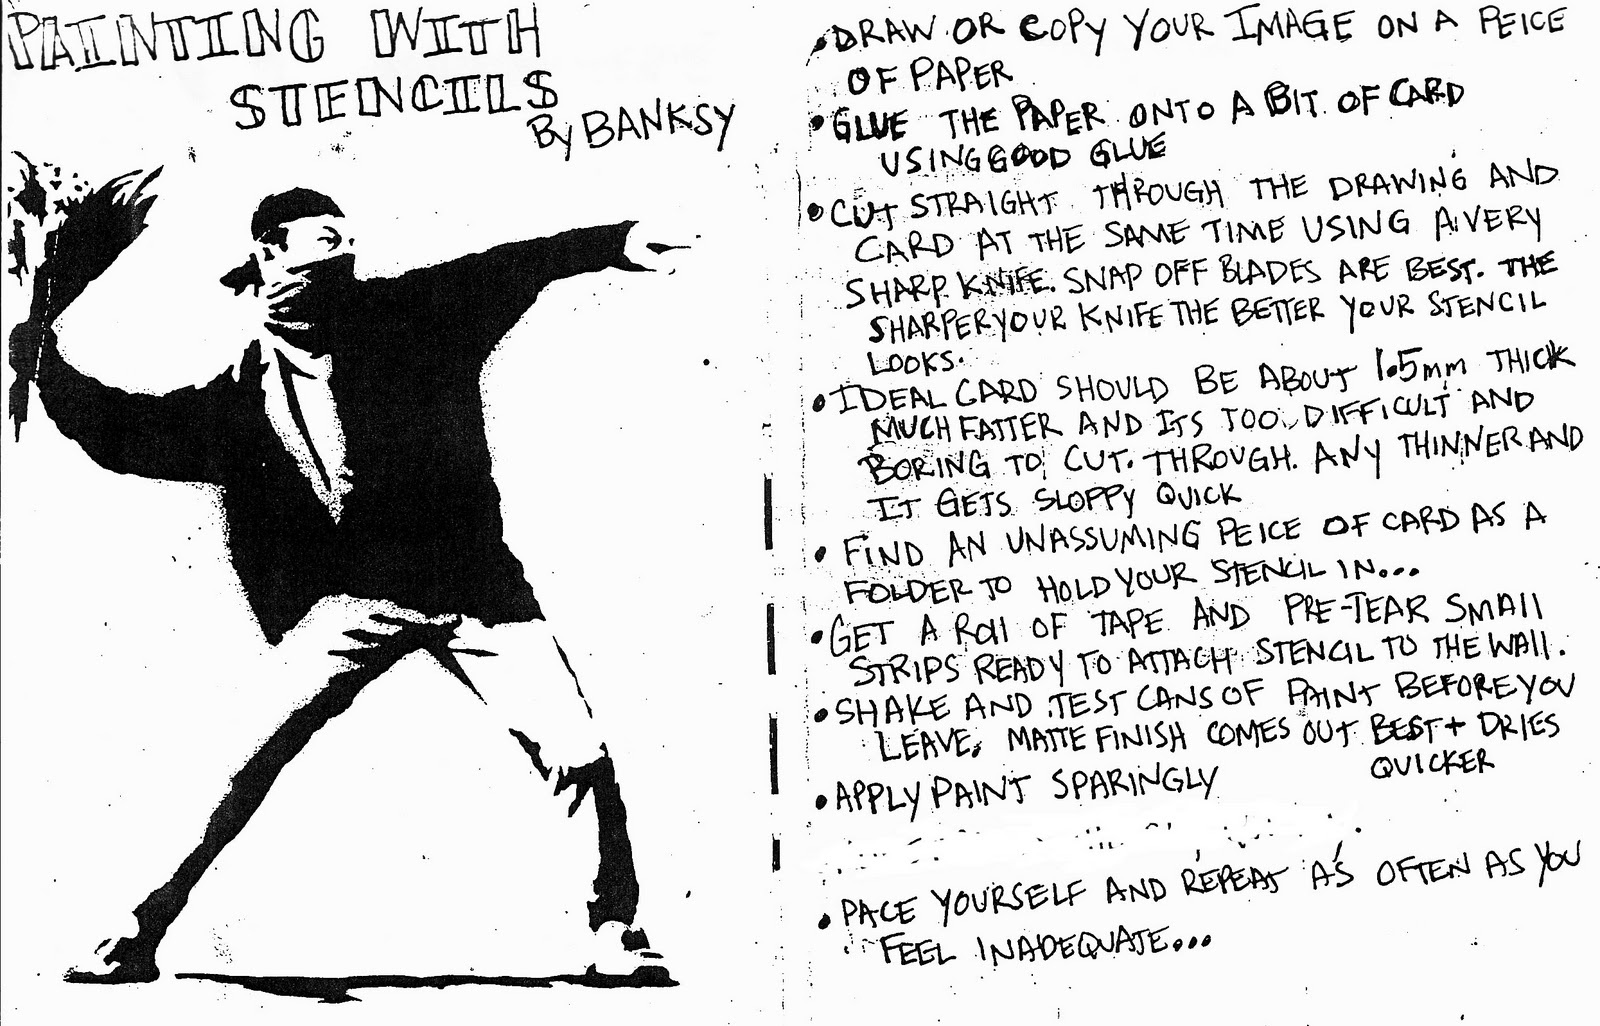 PAINTING WITH
STENCILS
By BANKSY
• DRAW OR COPY YOUR IMAGE ON A PEICE
OF PAPER
• GLUE THE PAPER ONTO A BIT OF CARD
USING GOOD GLUE
• CUT STRAIGHT THROUGH THE DRAWING AND
CARD AT THE SAME TIME USING A VERY
SHARP KNIFE. SNAP OFF BLADES ARE BEST. THE
SHARPER YOUR KNIFE THE BETTER YOUR STENCIL
LOOKS.
• IDEAL CARD SHOULD BE ABOUT 1.5mm THICK
MUCH FATTER AND ITS TOO DIFFICULT AND
BORING TO CUT THROUGH. ANY THINNER AND
IT GETS SLOPPY QUICK
• FIND AN UNASSUMING PEICE OF CARD AS A
FOLDER TO HOLD YOUR STENCIL IN...
• GET A ROll OF TAPE AND PRE-TEAR SMAll
STRIPS READY TO ATTACH STENCIL TO THE WAll.
• SHAKE AND TEST CANS OF PAINT BEFORE YOU
LEAVE. MATTE FINISH COMES OUT BEST + DRIES
QUICKER
• APPLY PAINT SPARINGLY
• PACE YOURSELF AND REPEAT AS OFTEN AS YOU
FEEL INADEQUATE...